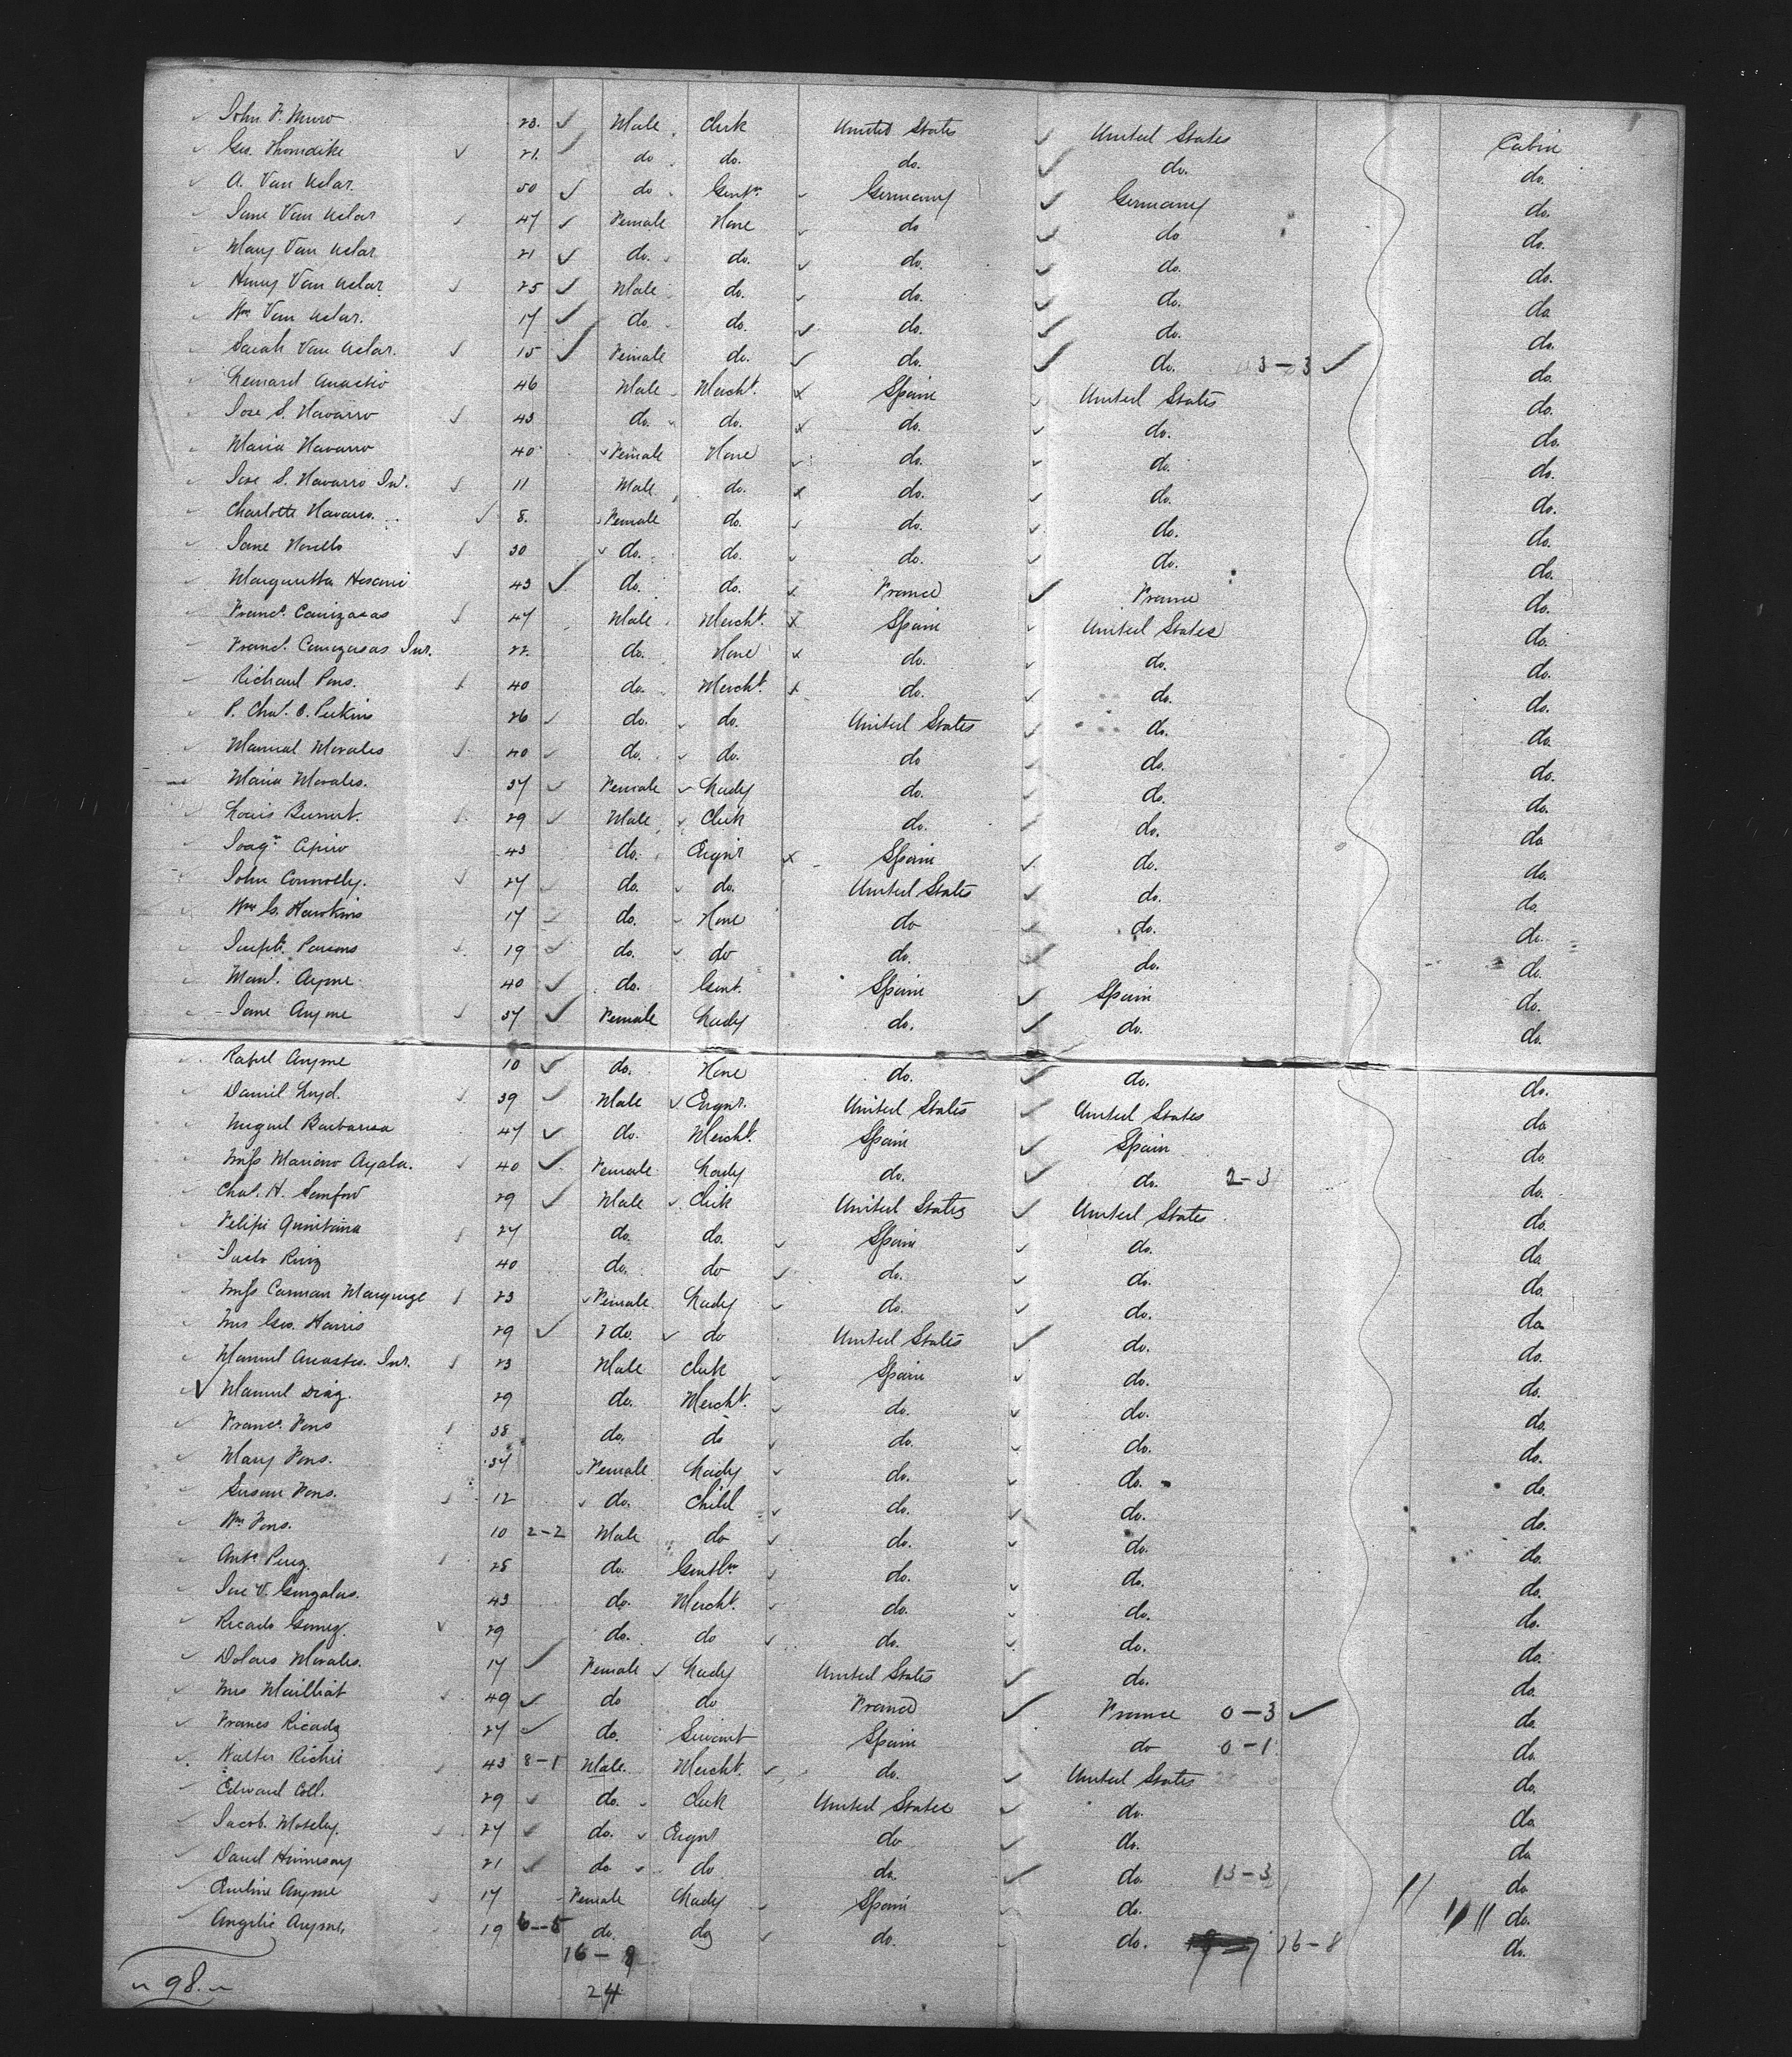 John F. Muro 23. Male Clerk United States United States Cabin
Geo. Thorndike 21. do do. do. do. do.
A. Van Uslar. 50 do Gentn. Germany Germany do.
Jane Van Uslar 47 Female None do do do.
Mary Van Uslar 21 do. do. do. do. do.
Henry Van Uslar 25 Male do. do. do. do
Wm Van Uslar. 17 do. do. do. do. do.
Sarah Van Uslar. 15 Female do. do. do. 13-3 do.
46 Male Mercht. Spain United States do.
Jose S. Navarro 43 do. do. do. do. do.
Maria Navarro 40 Female None do. do. do.
Jose S. Navarro Jnr. 11 Male do. do. do. do.
Charlotte Navarro. 8. Female do. do. do. do.
Jane 30 do. do. do. do. do.
Margaretta 43 do. do. France France do.
Francs. Canizasas 47 Male Mercht. Spain United States do.
Francs. Canizasas Jnr. 22. do. None do. do. do.
Richard Pons. 40 do. Mercht. do. do. do.
P. Chas. O. Perkins 26 do. do. United States do. do.
Manual Morales 40 do. do. do do. do.
Maria Morales. 37 Female Lady do. do. do.
Louis 29 Male Clerk do. do. do
Joaqn 43 do. Engnr Spain do. do.
John Connolly. 27 do. do. United States do. do.
Wm G. Hawkins 17 do. None do do. do.
Joseph Parsons 19 do. do do. do. do.
Manl. Ayme 40 do. Gent. Spain Spain do.
Jane Ayme 37 Female Lady do. do. do.
Rafel Ayme 10 do. None do. do. do.
Daniel Loyd. 39 Male Engnr. United States United States do
Miguel Barbarosa 47 do. Mercht. Spain Spain do
Miss Mariano Ayala. 40 Female Lady do. do. 2-3 do.
Chas. H. Samford 29 Male Clerk United States United States do.
Felipi Quintana 27 do. do. Spain do. do.
Justo Ruiz 40 do. do do. do. do.
Miss Carman Marquige 23 Female Lady do. do. do
Mrs Geo. Harris 29 do. do United States do. do.
Manuel Jnr. 23 Male Clerk Spain do. do.
Manuel Diaz. 29 do. Mercht. do. do. do.
Francs. Pons 38 do. do do. do. do.
Mary Pons. 34 Female Lady do. do. do.
Susan Pons. 12 do. Child do. do. do.
Wm Pons. 10 2-2 Male do do. do. do.
Anto Perez. 25 do. Gentlm do. do. do.
Jose V. Gonzalus. 43 do. Mercht. do. do. do.
Ricardo Gomez. 29 do. do do. do. do.
Dolores Morales. 17 Female Lady United States do. do.
Mrs Mailliat 49 do do France France 0-3 do
Frances Ricady 27 do. Servant Spain do 0-1 do.
Walter Richie 43 8-1 Male. Mercht. do. United States do
Edward Coll. 29 do. Clerk United States do. do
Jacob. Moseley. 27 do. Engnr do do. do
21 do do do. do. 13-3 do
Emeline Ayme 17 Female Lady Spain do. do.
Angelie Ayme. 19 6-5 do. do do. do. 16-8 do.
16-9
24
98.